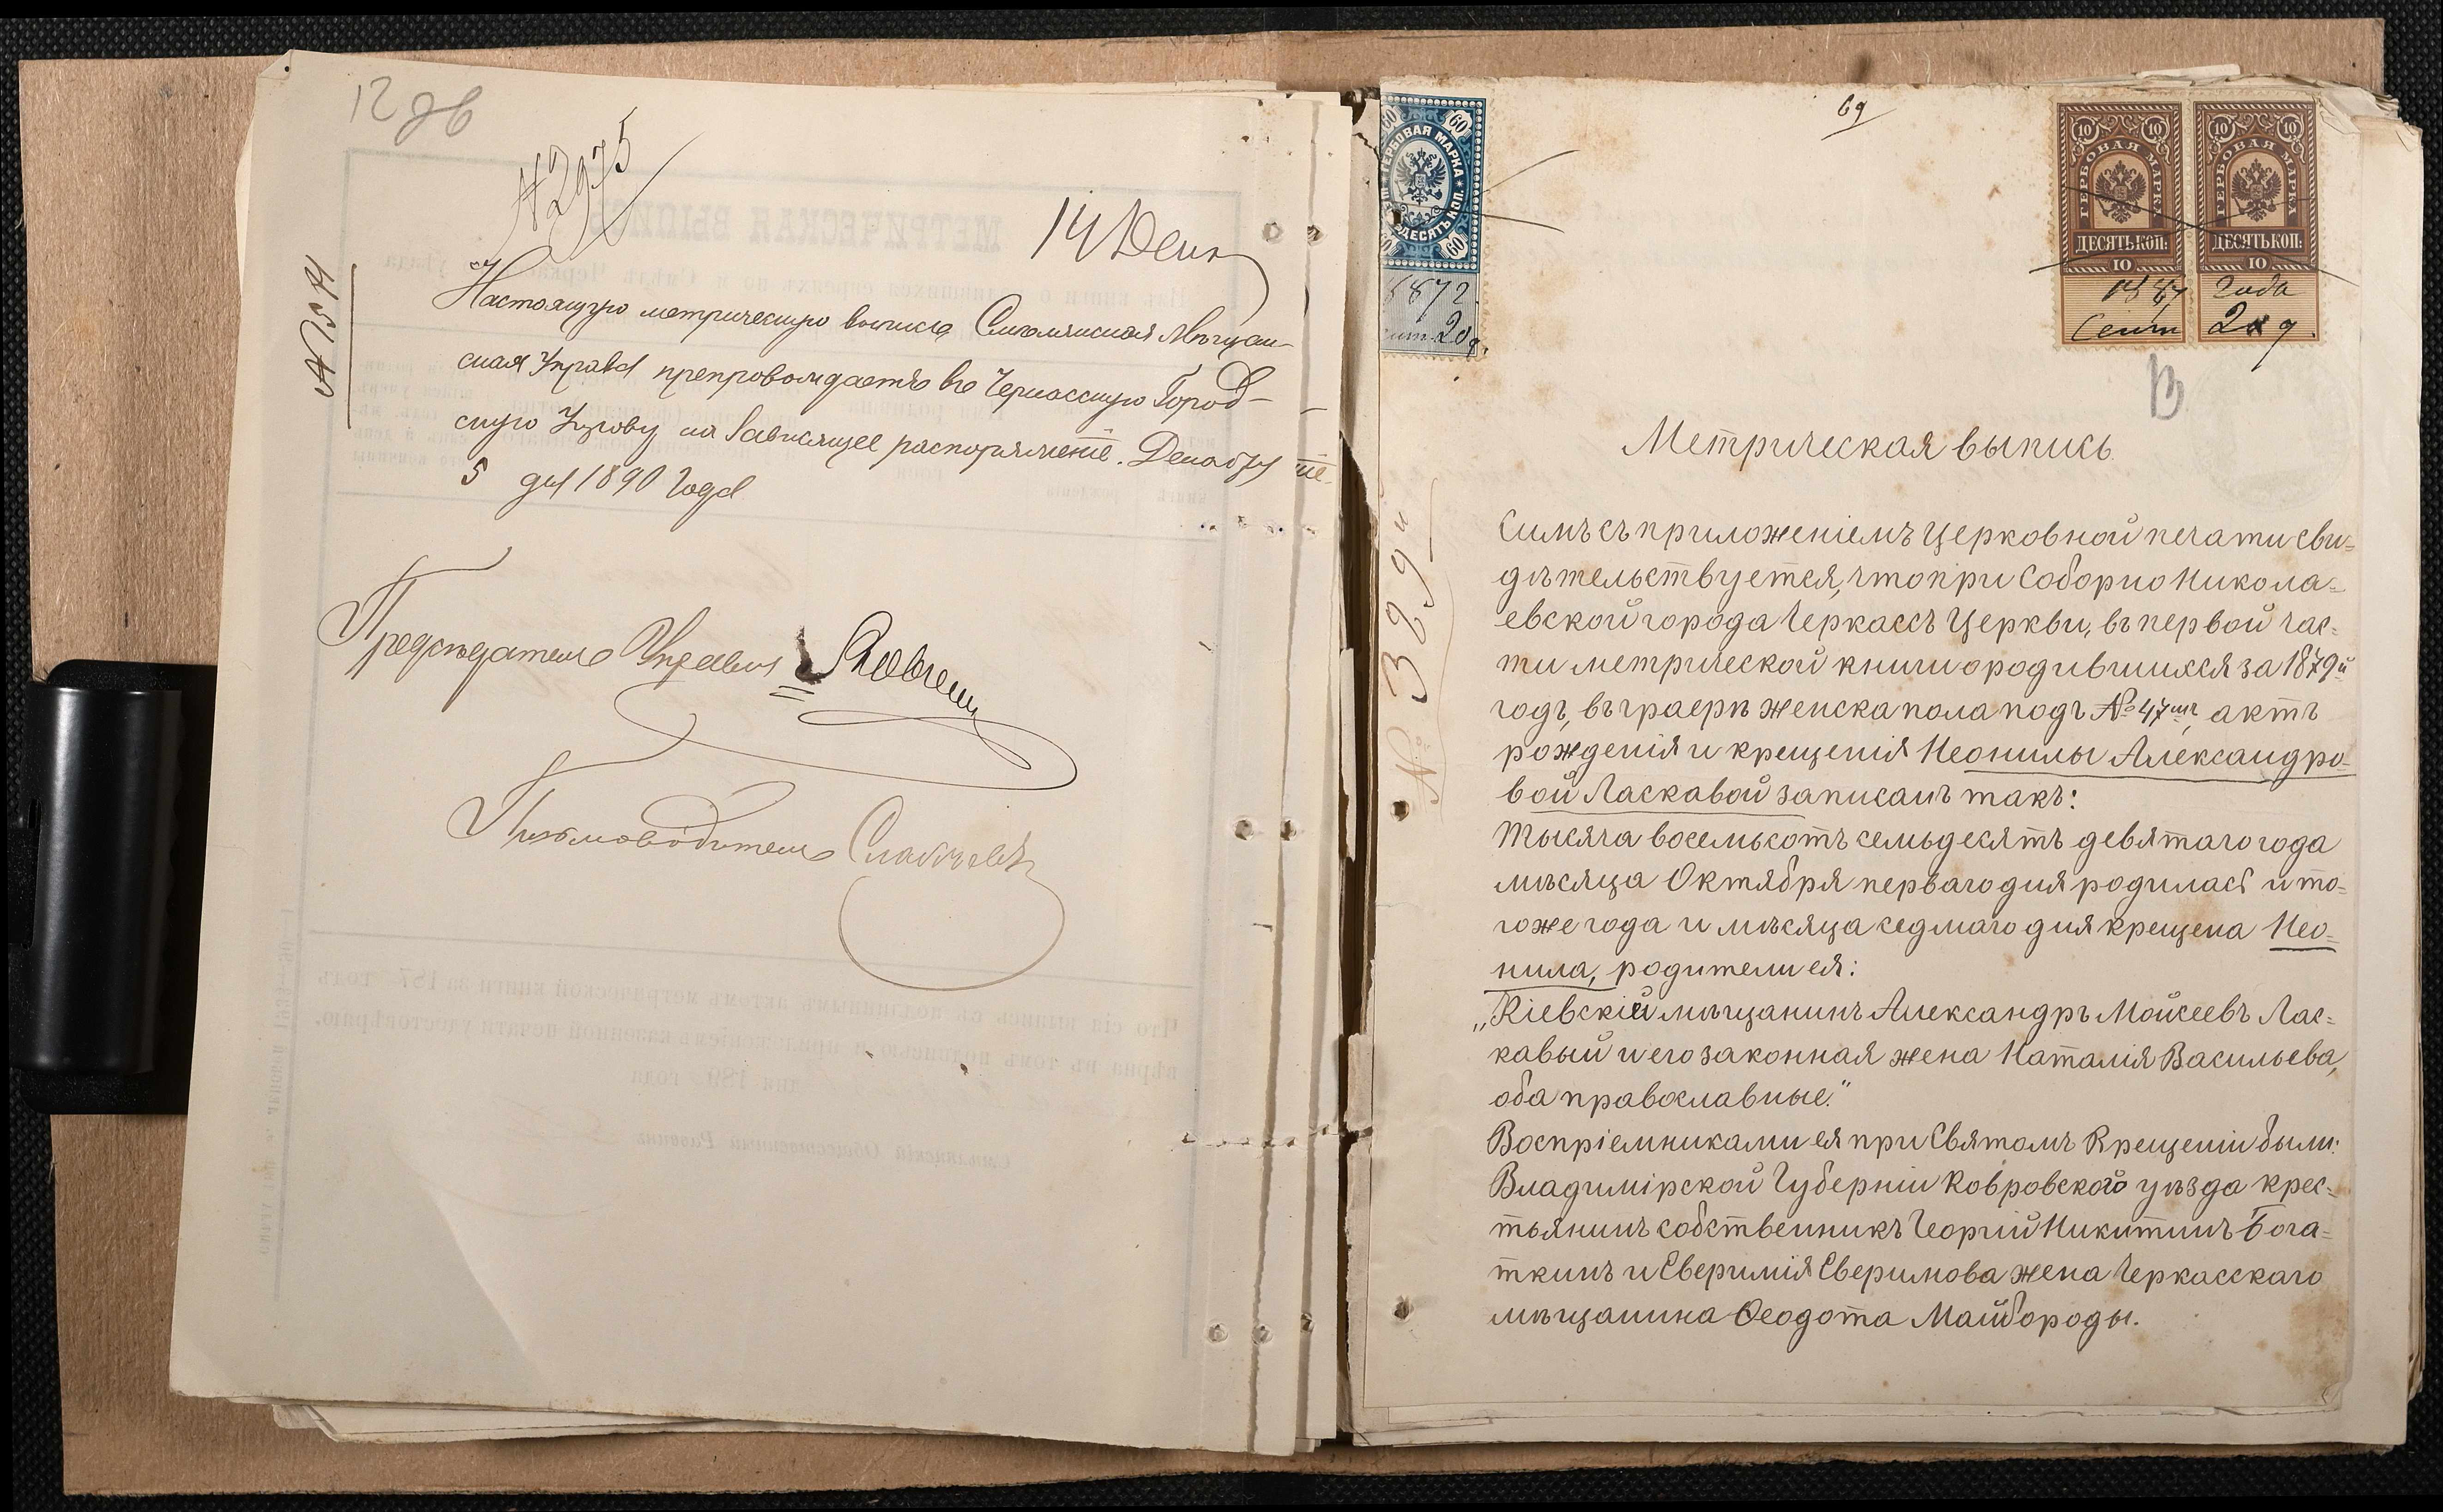 12 дв
№ 2975
14 Дек
Настоящую метрическую выпись Смѣлянская Мѣщан-
ская Управа препровождаетъ въ Черкасскую Город-
скую Управу на зависящее распоряженіе. Декабря
5 дня 1890 года
Предсѣдатель Управы
Письмоводитель
69
60 60
ГЕРБОВАЯ МАРКА
ДЕСЯТЬ КОП.
60
20 д.
10 10
ГЕРБОВАЯ МАРКА
ДЕСЯТЬ КОП:
10
1887
Сент
10 10
ГЕРБОВАЯ МАРКА
ДЕСЯТЬ КОП:
10
года
№ 389й
Метрическая выпись
Симъ съ приложеніемъ Церковной печати сви=
дѣтельствуется, что при Соборно Никола=
евской города Черкассъ Церкви, въ первой час=
ти метрической книги о родившихся за 1879й
годъ, въ графѣ женска пола подъ № 47мъ, актъ
рожденія и крещенія Неонилы Александро=
вой Ласкавой записанъ такъ:
Тысяча восемьсотъ семьдесятъ девятаго года
мѣсяца Октября перваго дня родилась и то=
гоже года и мѣсяца седмаго дня крещена Нео=
нила, родители ея:
„Кіевскій мѣщанинъ Александръ Мойсеевъ Лас=
кавый и его законная жена Наталія Васильева,
оба православные."
Воспріемниками ея при Святомъ Крещеніи были:
Владимірской Губерніи Ковровского уѣзда крес=
тьянинъ собственникъ Георгій Никитинъ Бога=
ткинъ и Евфимія Евфимова жена Черкасскаго
мѣщанина Ѳеодота Майбороды.